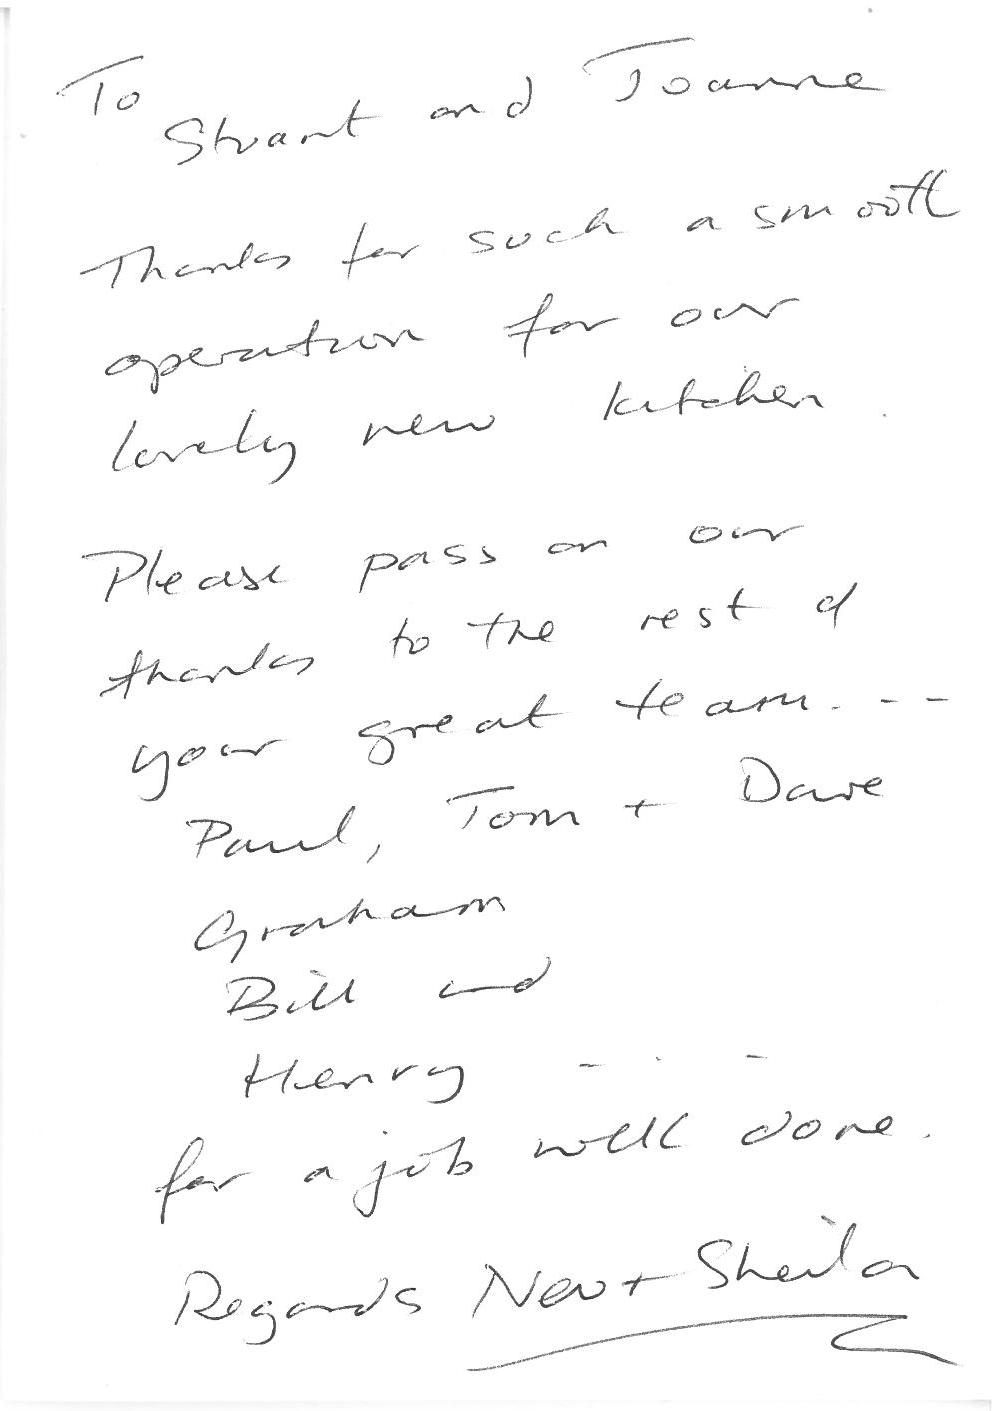 To
Stuart and Joanne
Thanks for such a smooth
operation for our
lovely new kitchen.
Please pass on our
thanks to the rest of
your great team. - -
Paul, Tom + Dave
Graham
Bill and
Henry - . -
for a job well done.
Regards Nev + Sheila